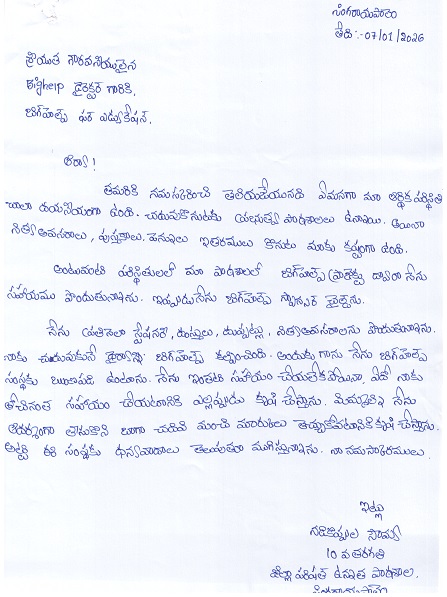 సింగరాయపాలెం
తేది:-07/01/2026
శ్రీయుత గౌరవనీయులైన
Bighelp డైరెక్టర్ గారికి,
బిగ్‌హెల్ప్ ఫర్ ఎడ్యుకేషన్.
ఆర్యా!
తమరికి నమస్కరించి తెలియజేయునది ఏమనగా మా ఆర్థిక పరిస్థితి
చాలా దయనీయంగా ఉంది. చదువుకొనుటకు ప్రభుత్వ పాఠశాలలు ఉన్నాయి. అయినా
నిత్యావసరాలు, పుస్తకాలు, పెనుషులు ఇతరములు కొనుట మాకు కష్టంగా ఉంది.
అటువంటి పరిస్థితులలో మా పాఠశాలలో బిగ్‌హెల్ప్ ప్రాజెక్టు ద్వారా నేను
సహాయము పొందుతున్నాను. ఇప్పుడు నేను బిగ్‌హెల్ప్ స్పాన్సర్ చైల్డ్‌ను.
నేను ప్రతినెలా స్టేషనరీ, దుస్తులు, దుప్పట్లు, నిత్యావసరాలను పొందుతున్నాను.
నాకు చదువుకునే ధైర్యాన్ని బిగ్‌హెల్ప్ కల్పించింది. అందుకు గాను నేను బిగ్‌హెల్ప్
సంస్థకు ఋణపడి ఉంటాను. నేను ఇంతటి సహాయం చేయలేకపోయినా, ఏదో నాకు
తోచినంత సహాయం చేయటానికి ఎల్లప్పుడు కృషి చేస్తాను. మిమ్మల్ని నేను
ఆదర్శంగా తీసుకొని బాగా చదివి మంచి మార్కులు తెచ్చుకోవటానికి కృషి చేస్తాను.
అట్టి ఈ సంస్థకు ధన్యవాదాలు తెలుపుతూ ముగిస్తున్నాను. నా నమస్కారములు.
ఇట్లు
సౌమ్య
10 వ తరగతి
జిల్లా పరిషత్ ఉన్నత పాఠశాల,
సింగరాయపాలెం